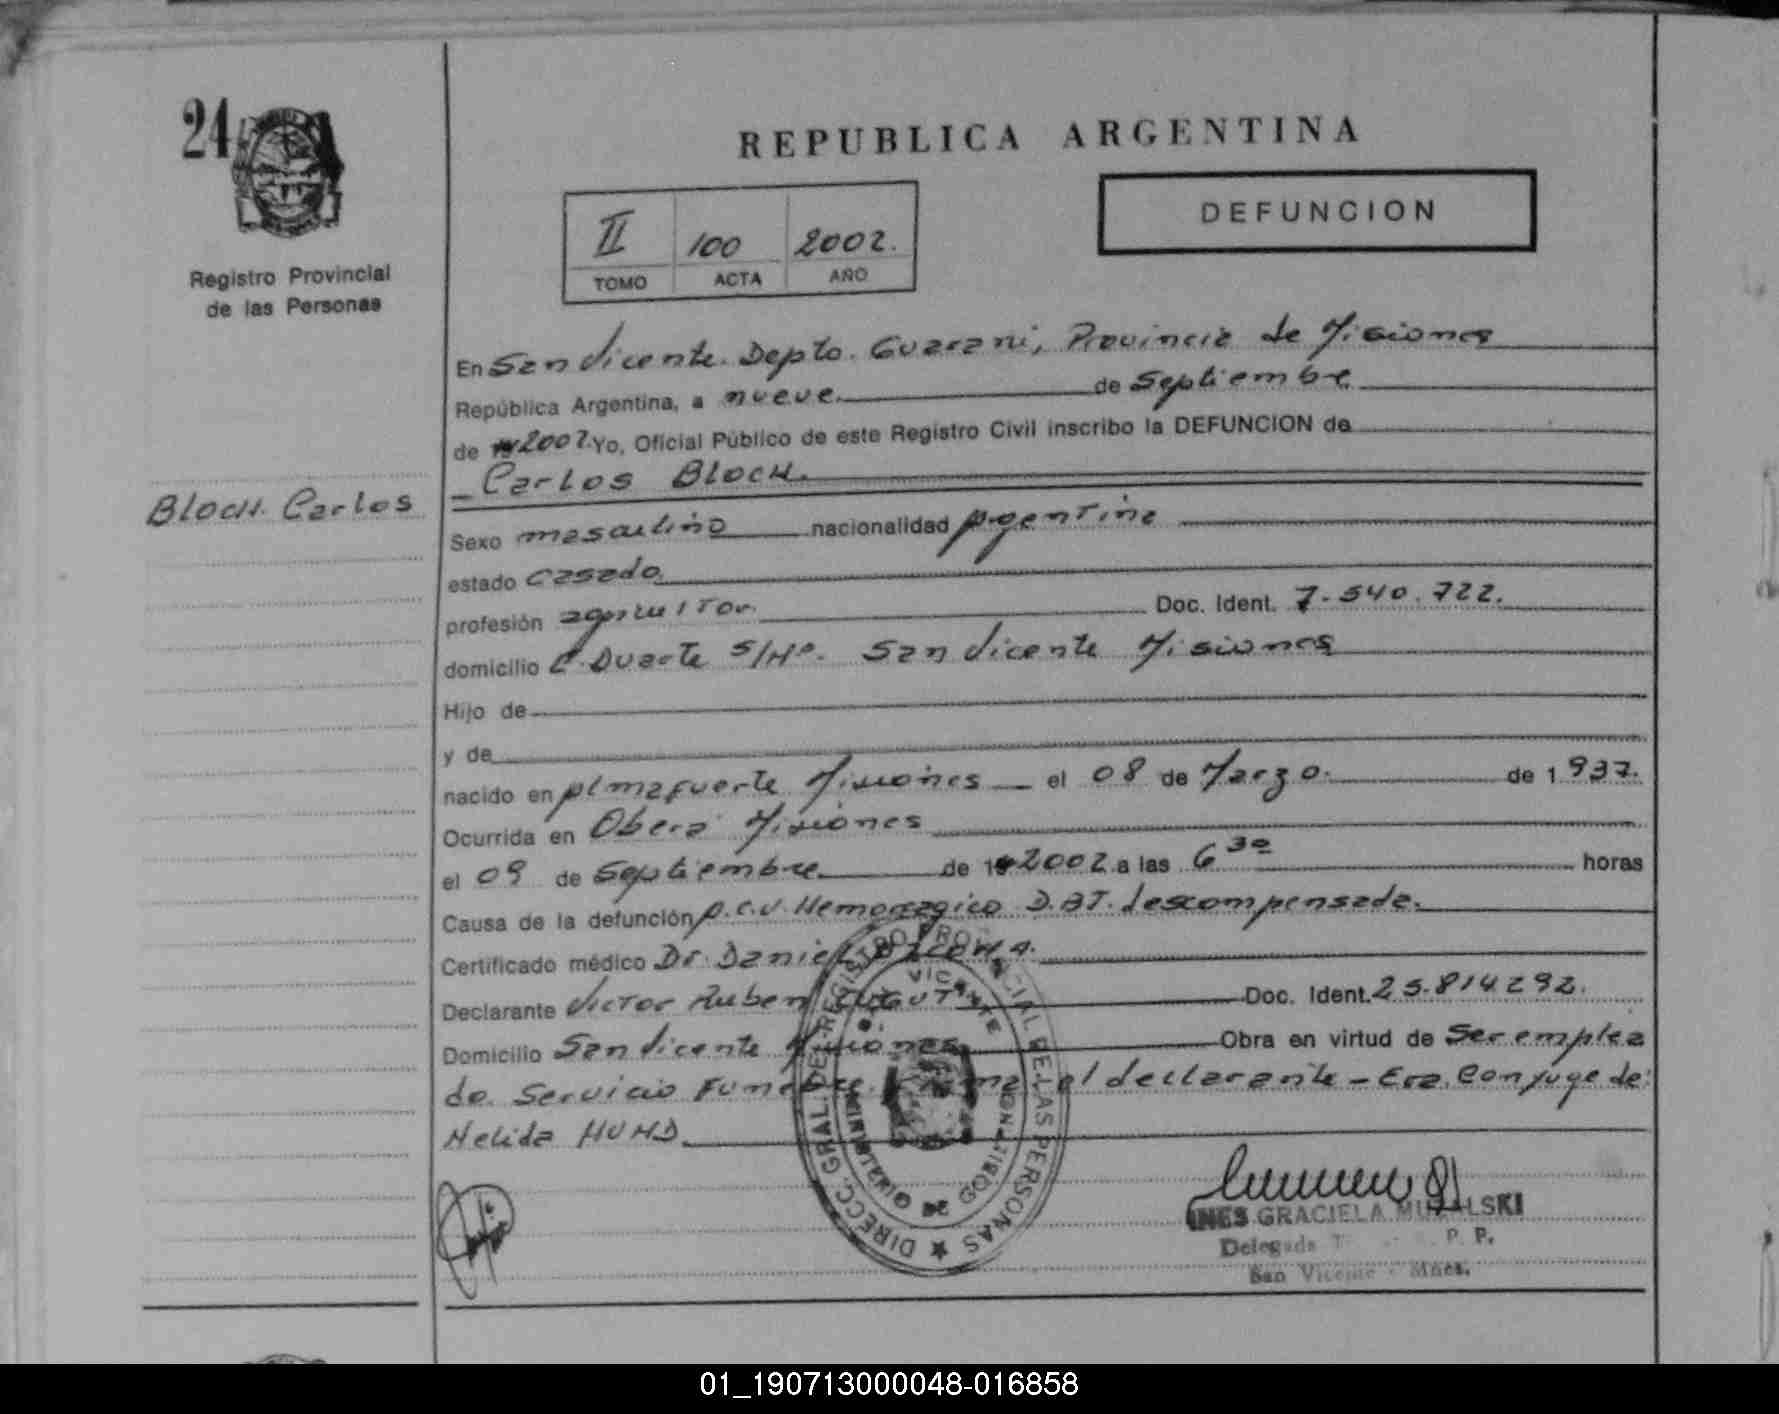 24
REPUBLICA ARGENTINA
DEFUNCION
II 100 2002.
TOMO ACTA AÑO
Registro Provincial
de las Personas
Bloch. Carlos
En San Vicente. Depto. Guarani, Provincia de Misiones
República Argentina, a nueve de Septiembre
de 2002 Yo, Oficial Público de este Registro Civil inscribo la DEFUNCION de
Carlos Bloch.
Sexo masculino nacionalidad Argentina
estado casado
profesión agricultor. Doc. Ident. 7.540.722.
domicilio C. Duarte S/Nº. San Vicente Misiones
Hijo de
y de
nacido en Almafuerte Misiones el 08 de Marzo. de 1 937.
Ocurrida en Oberá Misiones
el 09 de Septiembre de 2002 a las 6 30 horas
Causa de la defunción A.C.V. Hemorragico D.BT. descompensada.
Certificado médico Dr. Daniel
Declarante Victor Ruben Doc. Ident. 25.814292.
Domicilio San Vicente Misiones Obra en virtud de Ser emplea
do. Servicio Funebre. Firma el declarante - Era Conyuge de:
Nelida HUND
DIRECC. GRAL. DEL REGISTRO PROVINCIAL DE LAS PERSONAS
VICENTE
MINISTERIO DE GOBIERNO
INES GRACIELA
Delegada P. P.
San Vicente - Mnes.
01_190713000048-016858